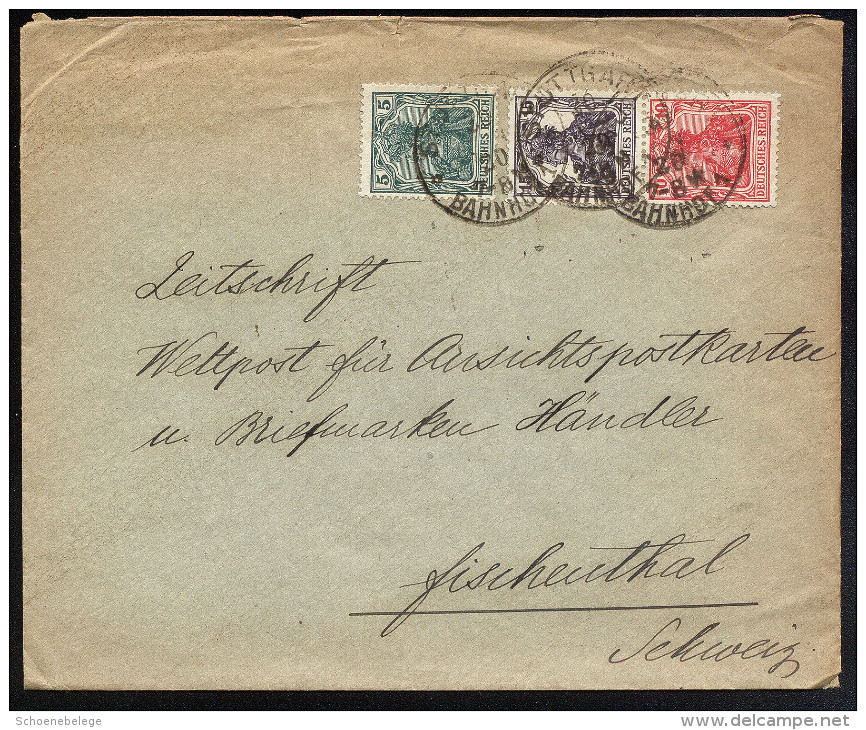 5 DEUTSCHES REICH 5
15 DEUTSCHES REICH 15
10 DEUTSCHES REICH 10
STUTTGART
BAHNHOF
7-8
Zeitschrift
Weltpost für Ansichtspostkarten
u. Briefmarken Händler
Fischenthal
Schweiz
Schoenebelege
www.delcampe.net